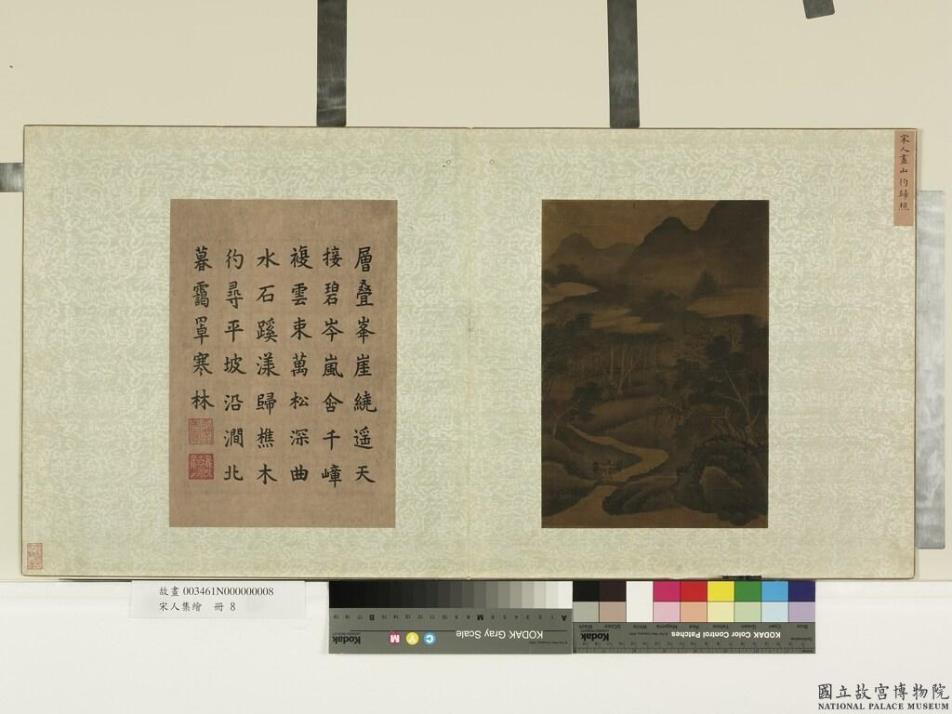 宋人畫山彴歸樵
層疊峯崖繞遥天
接碧岑嵐含千嶂
複雲束萬松深曲
水石蹊漾歸樵木
彴尋平坡沿澗北
暮靄罩寒林
故畫 003461N000000008
宋人集繪 冊 8
KODAK Gray Scale
C Y M
Kodak
A M B
KODAK Color Control Patches
Kodak
國立故宮博物院
NATIONAL PALACE MUSEUM